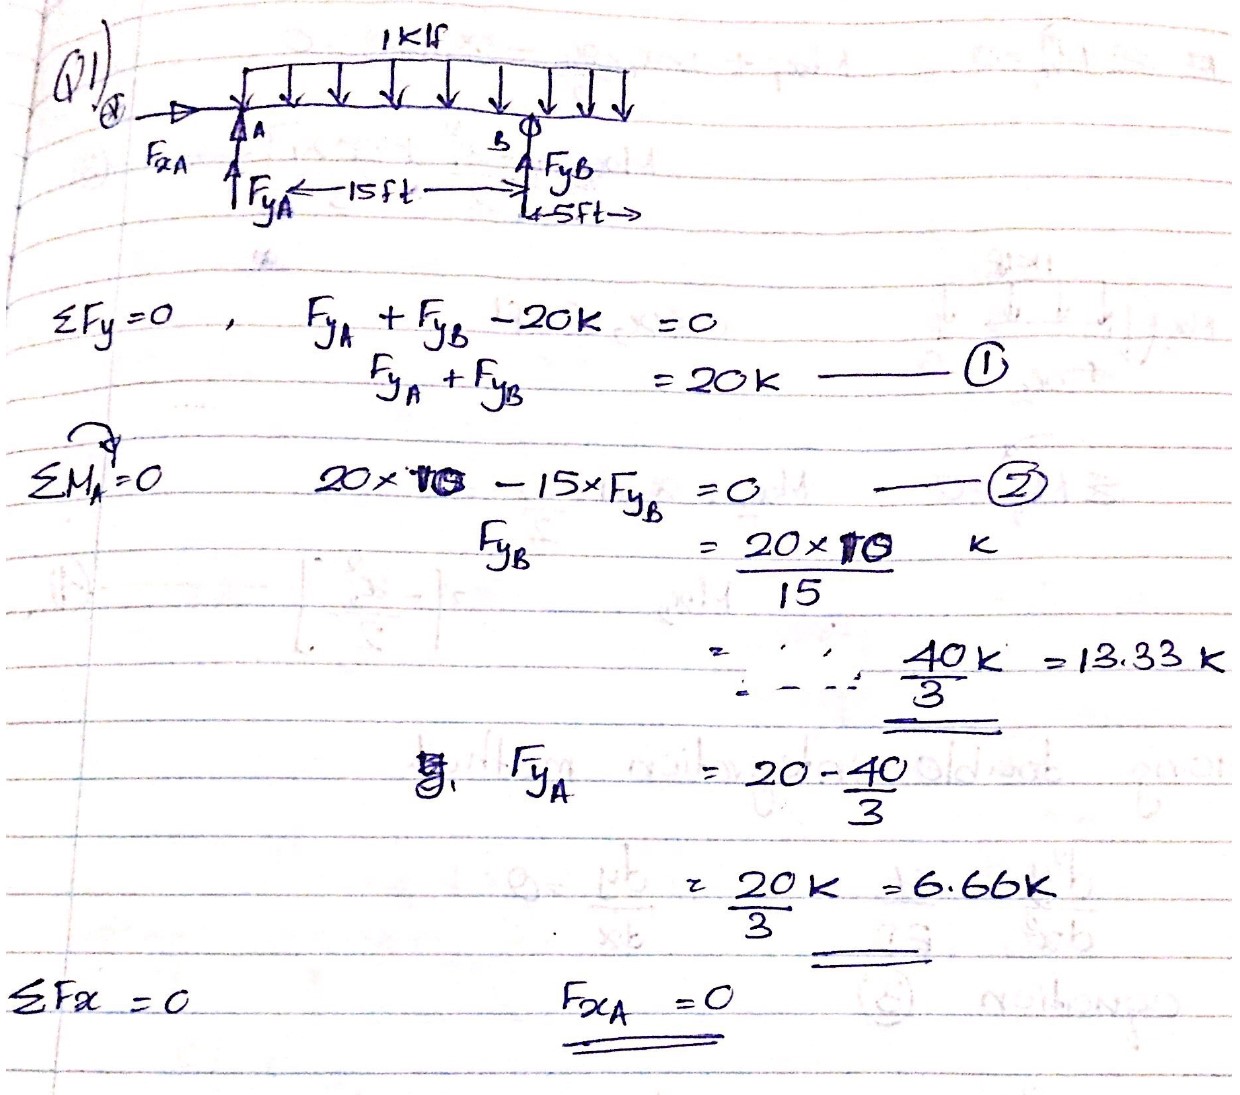 Q1)
1Klf
A
B
FxA
FyA
15ft
FyB
5ft
ΣFy=0 , FyA + FyB -20K = 0
FyA + FyB = 20K ——— ①
ΣMA=0 20×10 - 15×FyB = 0 ——— ②
FyB = 20×10/15 K
= 40/3 K = 13.33 K
FyA = 20 - 40/3
= 20/3 K = 6.66K
ΣFx = 0 FxA = 0